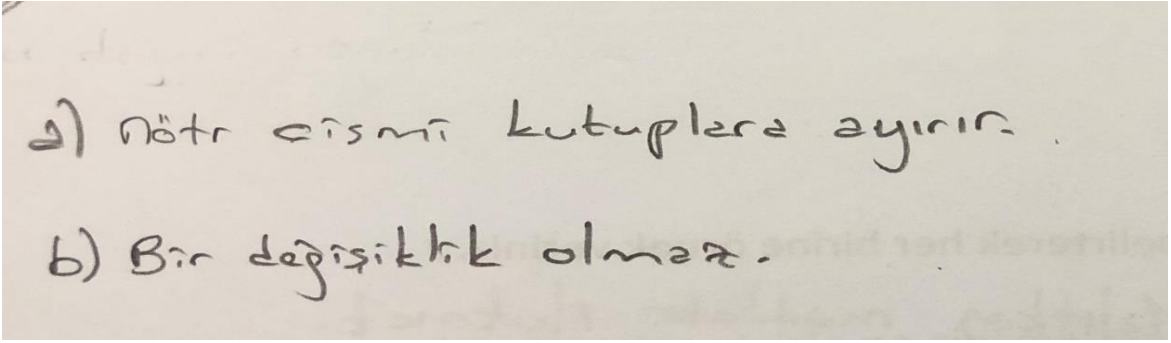 a) nötr cismi kutuplara ayırır.
b) Bir değişiklik olmaz.